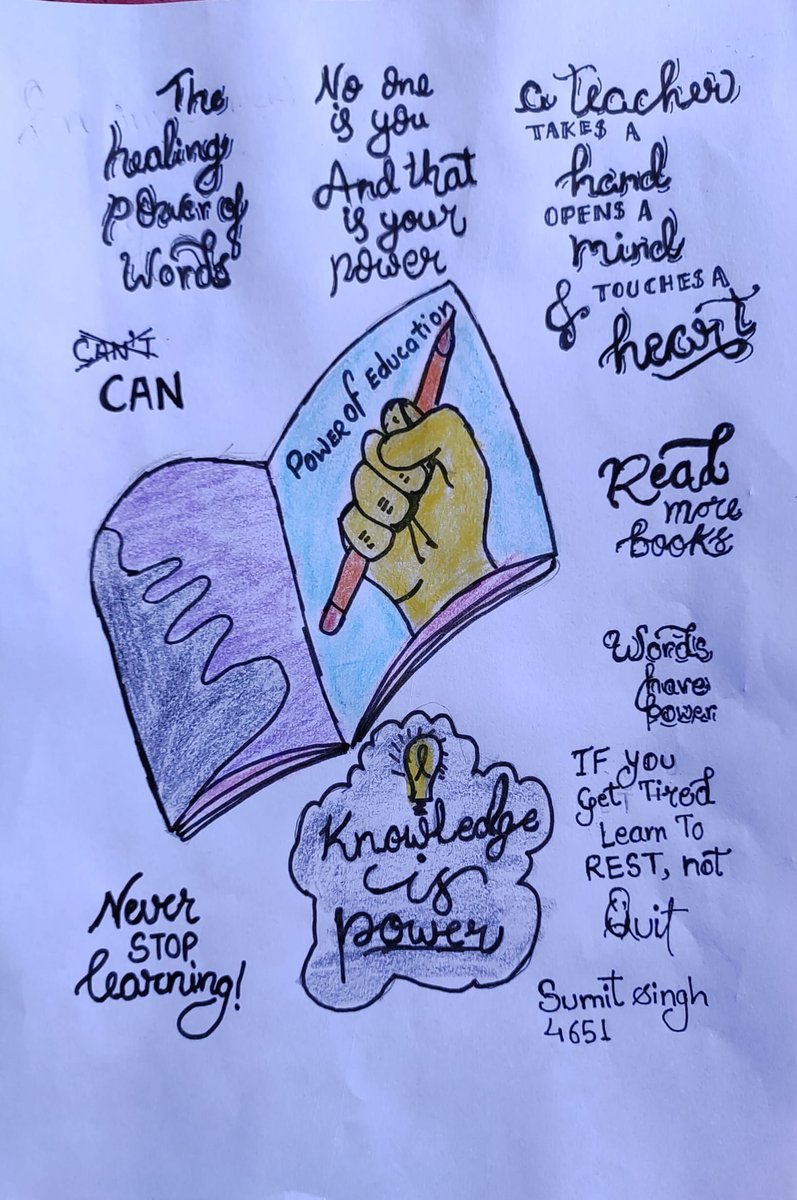 The
healing
power of
Words
No one
is you
And that
is your
power
a teacher
TAKES A
hand
OPENS A
mind
& TOUCHES A
heart
CAN'T
CAN
Power of Education
Read
more
books
Words
have
power
IF you
Get Tired
Learn To
REST, not
Quit
Knowledge
is
power
Never
STOP
learning!
Sumit singh
4651